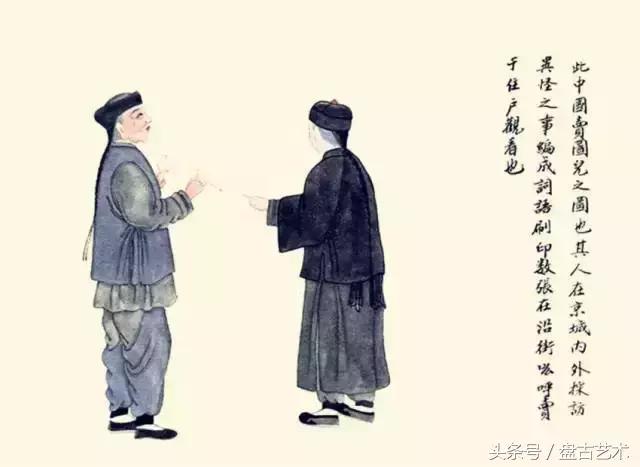 此中國賣圖兒之圖也其人在京城內外採訪
異怪之事編成詞語刷印數張在沿街吆呼賣
于住戶觀看也
头条号／盘古艺术